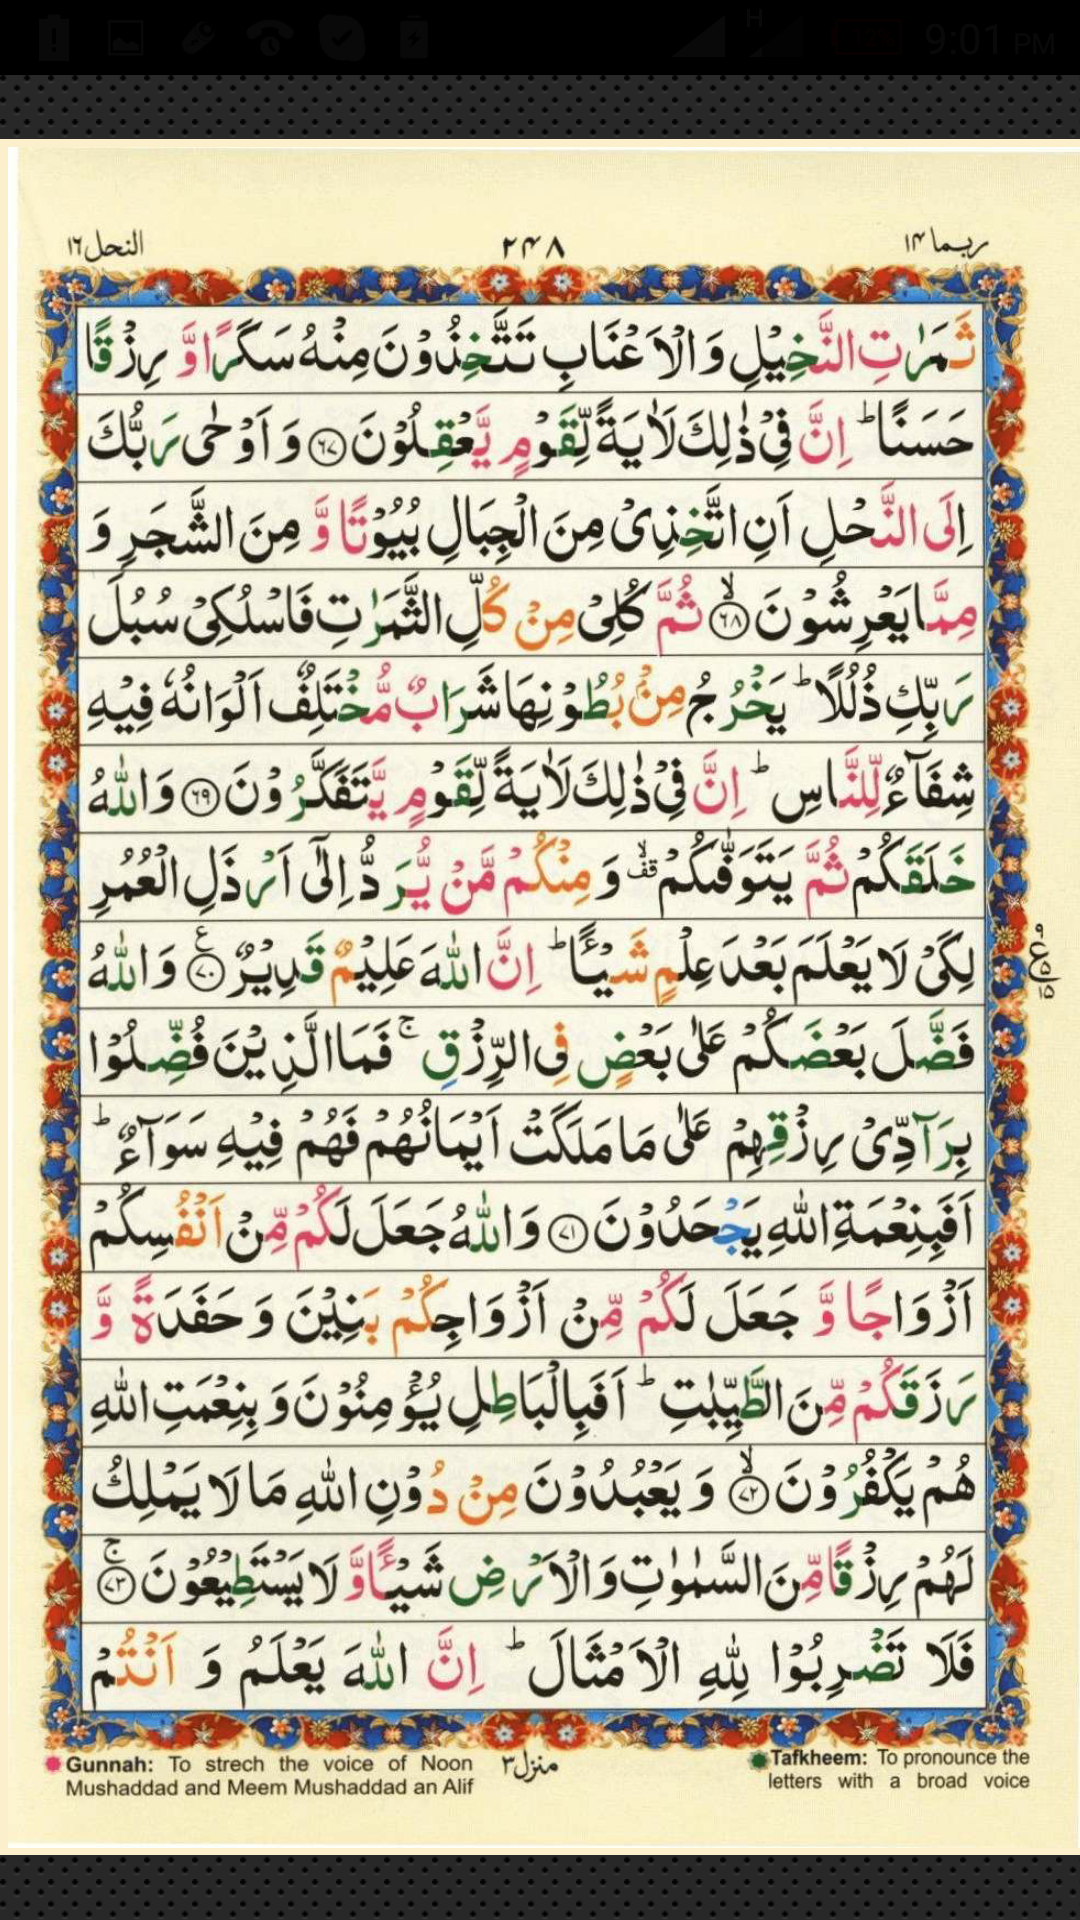 9:01 PM
H
12%
ربما ١٤
٢٤٨
النحل ١٦
ثَمَرٰتِ النَّخِيْلِ وَالْاَعْنَابِ تَتَّخِذُوْنَ مِنْهُ سَكَرًا وَّ رِزْقًا
حَسَنًا ؕ اِنَّ فِيْ ذٰلِكَ لَاٰيَةً لِّقَوْمٍ يَّعْقِلُوْنَ ﴿۶۷﴾ وَ اَوْحٰى رَبُّكَ
اِلَى النَّحْلِ اَنِ اتَّخِذِيْ مِنَ الْجِبَالِ بُيُوْتًا وَّ مِنَ الشَّجَرِ وَ
مِمَّا يَعْرِشُوْنَ ﴿۶۸﴾ۙ ثُمَّ كُلِيْ مِنْ كُلِّ الثَّمَرٰتِ فَاسْلُكِيْ سُبُلَ
رَبِّكِ ذُلُلًا ؕ يَخْرُجُ مِنْۢ بُطُوْنِهَا شَرَابٌ مُّخْتَلِفٌ اَلْوَانُهٗ فِيْهِ
شِفَآءٌ لِّلنَّاسِ ؕ اِنَّ فِيْ ذٰلِكَ لَاٰيَةً لِّقَوْمٍ يَّتَفَكَّرُوْنَ ﴿۶۹﴾ وَاللّٰهُ
خَلَقَكُمْ ثُمَّ يَتَوَفّٰىكُمْ ۙقف وَ مِنْكُمْ مَّنْ يُّرَدُّ اِلٰٓى اَرْذَلِ الْعُمُرِ
لِكَيْ لَا يَعْلَمَ بَعْدَ عِلْمٍ شَيْـًٔا ؕ اِنَّ اللّٰهَ عَلِيْمٌ قَدِيْرٌ ﴿۷۰﴾ع وَاللّٰهُ
فَضَّلَ بَعْضَكُمْ عَلٰى بَعْضٍ فِى الرِّزْقِ ۚ فَمَا الَّذِيْنَ فُضِّلُوْا
بِرَآدِّيْ رِزْقِهِمْ عَلٰى مَا مَلَكَتْ اَيْمَانُهُمْ فَهُمْ فِيْهِ سَوَآءٌ ؕ
اَفَبِنِعْمَةِ اللّٰهِ يَجْحَدُوْنَ ﴿۷۱﴾ وَاللّٰهُ جَعَلَ لَكُمْ مِّنْ اَنْفُسِكُمْ
اَزْوَاجًا وَّ جَعَلَ لَكُمْ مِّنْ اَزْوَاجِكُمْ بَنِيْنَ وَ حَفَدَةً وَّ
رَزَقَكُمْ مِّنَ الطَّيِّبٰتِ ؕ اَفَبِالْبَاطِلِ يُؤْمِنُوْنَ وَ بِنِعْمَتِ اللّٰهِ
هُمْ يَكْفُرُوْنَ ﴿۷۲﴾ۙ وَ يَعْبُدُوْنَ مِنْ دُوْنِ اللّٰهِ مَا لَا يَمْلِكُ
لَهُمْ رِزْقًا مِّنَ السَّمٰوٰتِ وَالْاَرْضِ شَيْـًٔا وَّ لَا يَسْتَطِيْعُوْنَ ﴿۷۳﴾ۚ
فَلَا تَضْرِبُوْا لِلّٰهِ الْاَمْثَالَ ؕ اِنَّ اللّٰهَ يَعْلَمُ وَ اَنْتُمْ
Gunnah: To strech the voice of Noon
Mushaddad and Meem Mushaddad an Alif
منزل ٣
Tafkheem: To pronounce the
letters with a broad voice